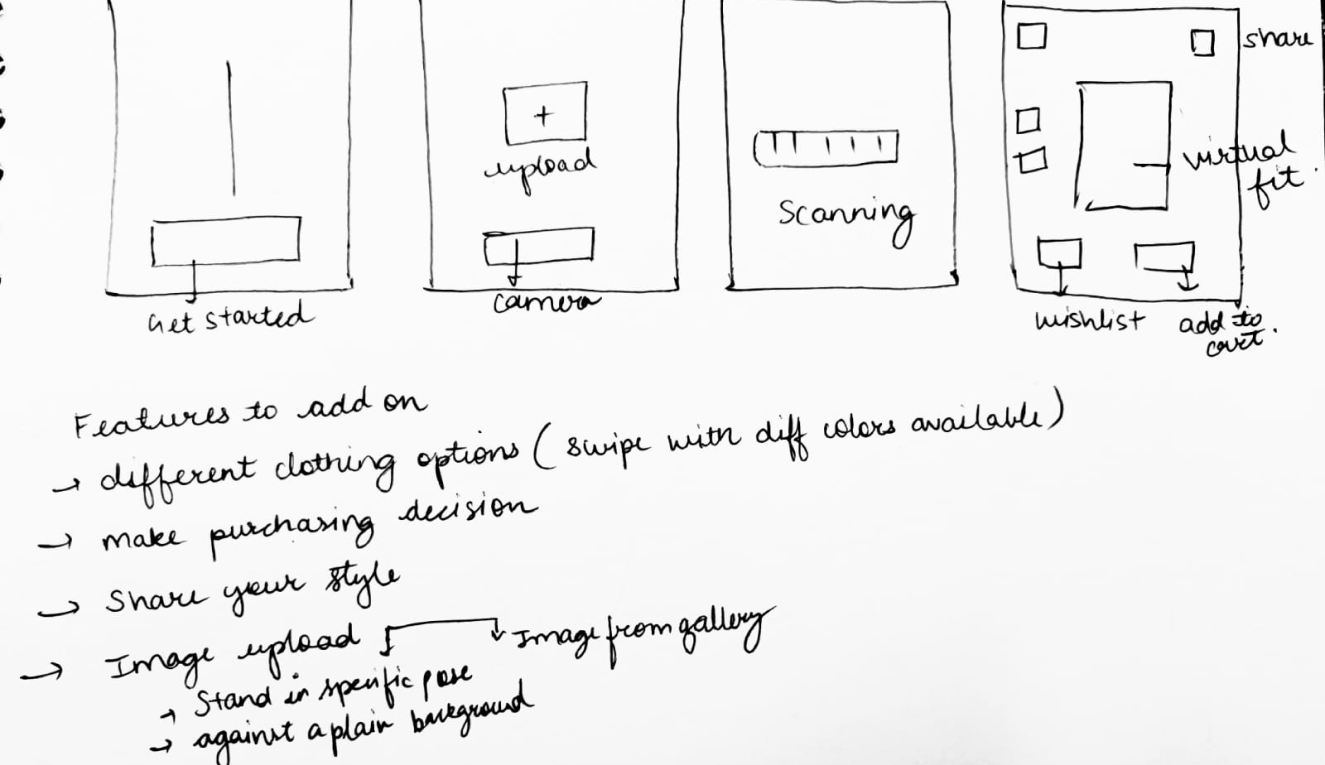 share
+
upload
virtual
fit.
Scanning
Get started
camera
wishlist
add to
cart.
Features to add on
→ different clothing options (swipe with diff colors available)
→ make purchasing decision
→ Share your style
→ Image upload
Image from gallery
→ Stand in specific pose
→ against a plain background